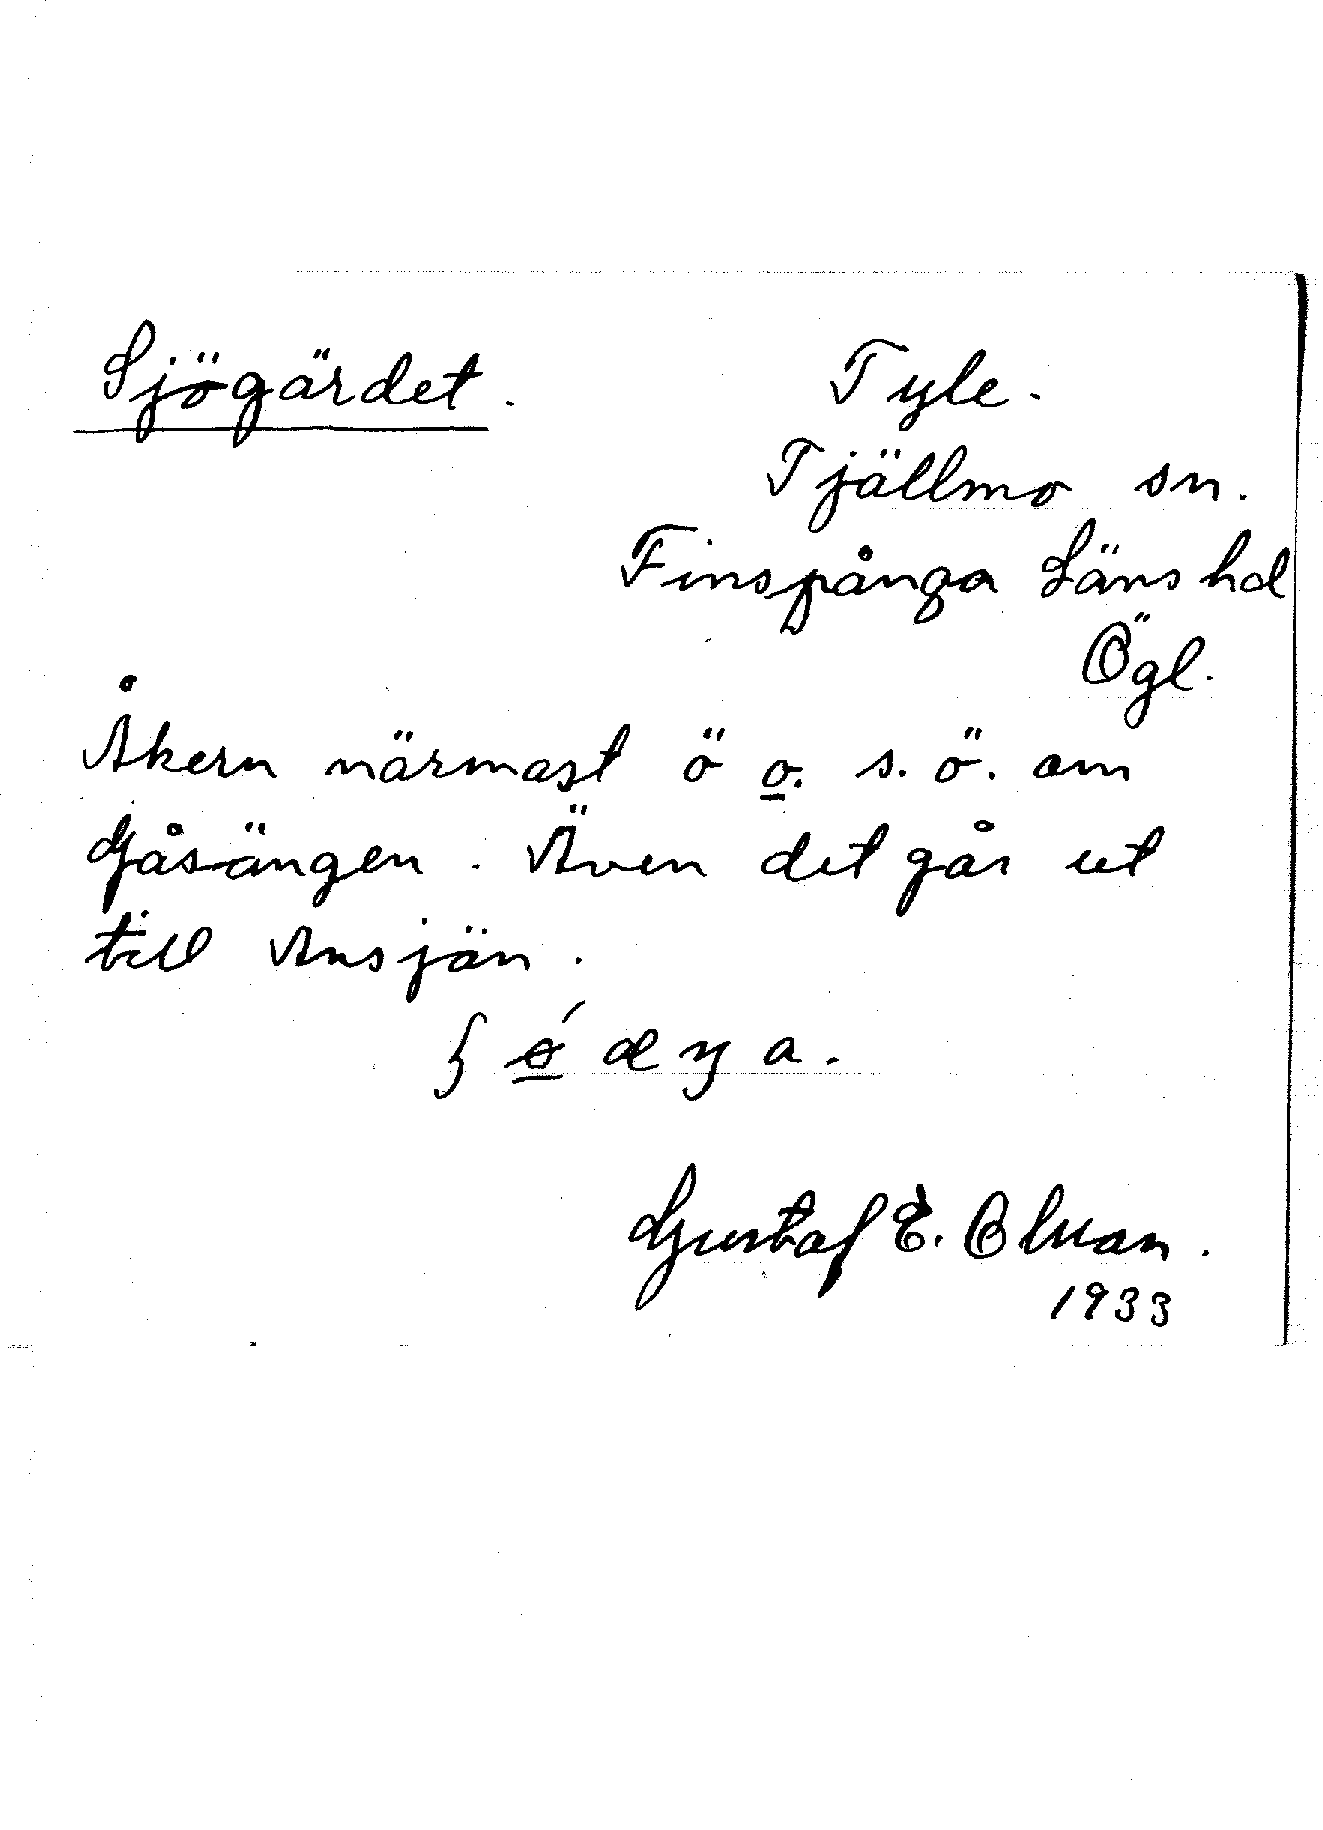 Sjögärdet.
Tyle.
Tjällmo sn.
Finspånga Läns hd
Ögl.
Åkern närmast ö o. s.ö. om
Gåsängen. Även det går ut
till Ansjön.
Gustaf E. Olman.
1933